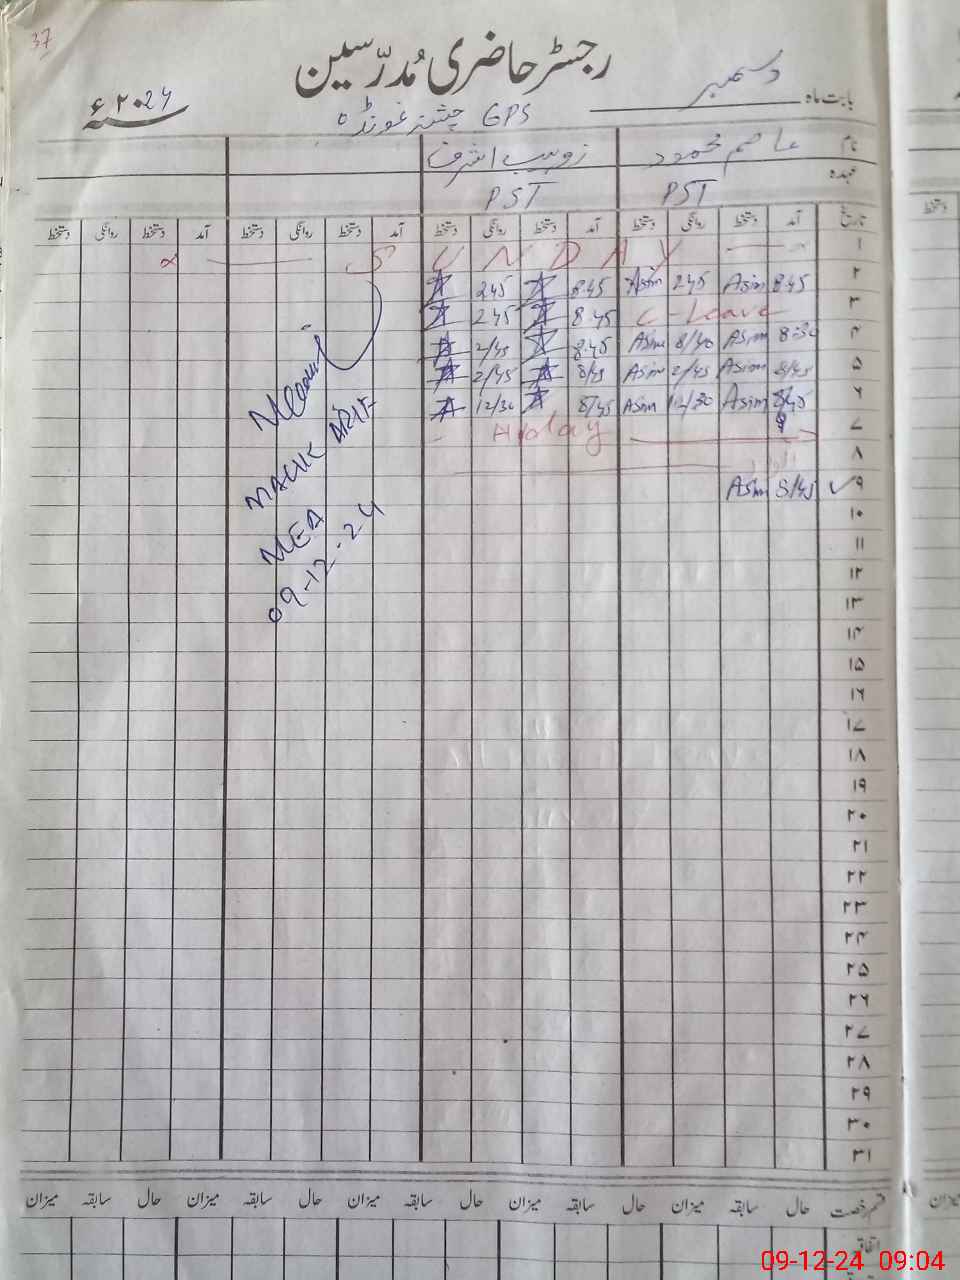 37
رجسٹر حاضری مُدرّسین
بابت ماہ دسمبر
۲۰24ء
GPS چشتہ غونڈہ
نام عاصم محمود زوہیب اشرف
عہدہ PST PST
تاریخ آمد دستخط روانگی دستخط آمد دستخط روانگی دستخط آمد دستخط روانگی دستخط آمد دستخط روانگی دستخط
۱ S U N D A Y
۲ 8.45 Asim 245 Asim 8.45 245
۳ C-Leave 8.45 245
۴ 8:30 Asim 8/40 Asim 8.45 2/45
۵ 8/45 Asim 2/45 Asim 8/45 2/45
۶ 8/45 Asim 12/30 Asim 8/45 12/30
۷ Holday
۸ اتوار
۹ 8/45 Asim
۱۰
۱۱
۱۲
۱۳
۱۴
۱۵
۱۶
۱۷
۱۸
۱۹
۲۰
۲۱
۲۲
۲۳
۲۴
۲۵
۲۶
۲۷
۲۸
۲۹
۳۰
۳۱
MALIK ARIF
MEA
09-12-24
قسم رخصت حال سابقہ میزان حال سابقہ میزان حال سابقہ میزان حال سابقہ میزان
اتفاقیہ
دستخط
میزان
09-12-24 09:04